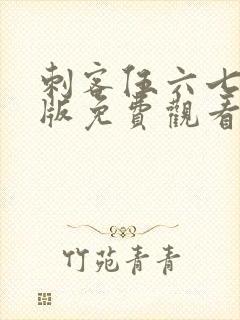 刺客伍六七
版免費觀看
竹苑青青